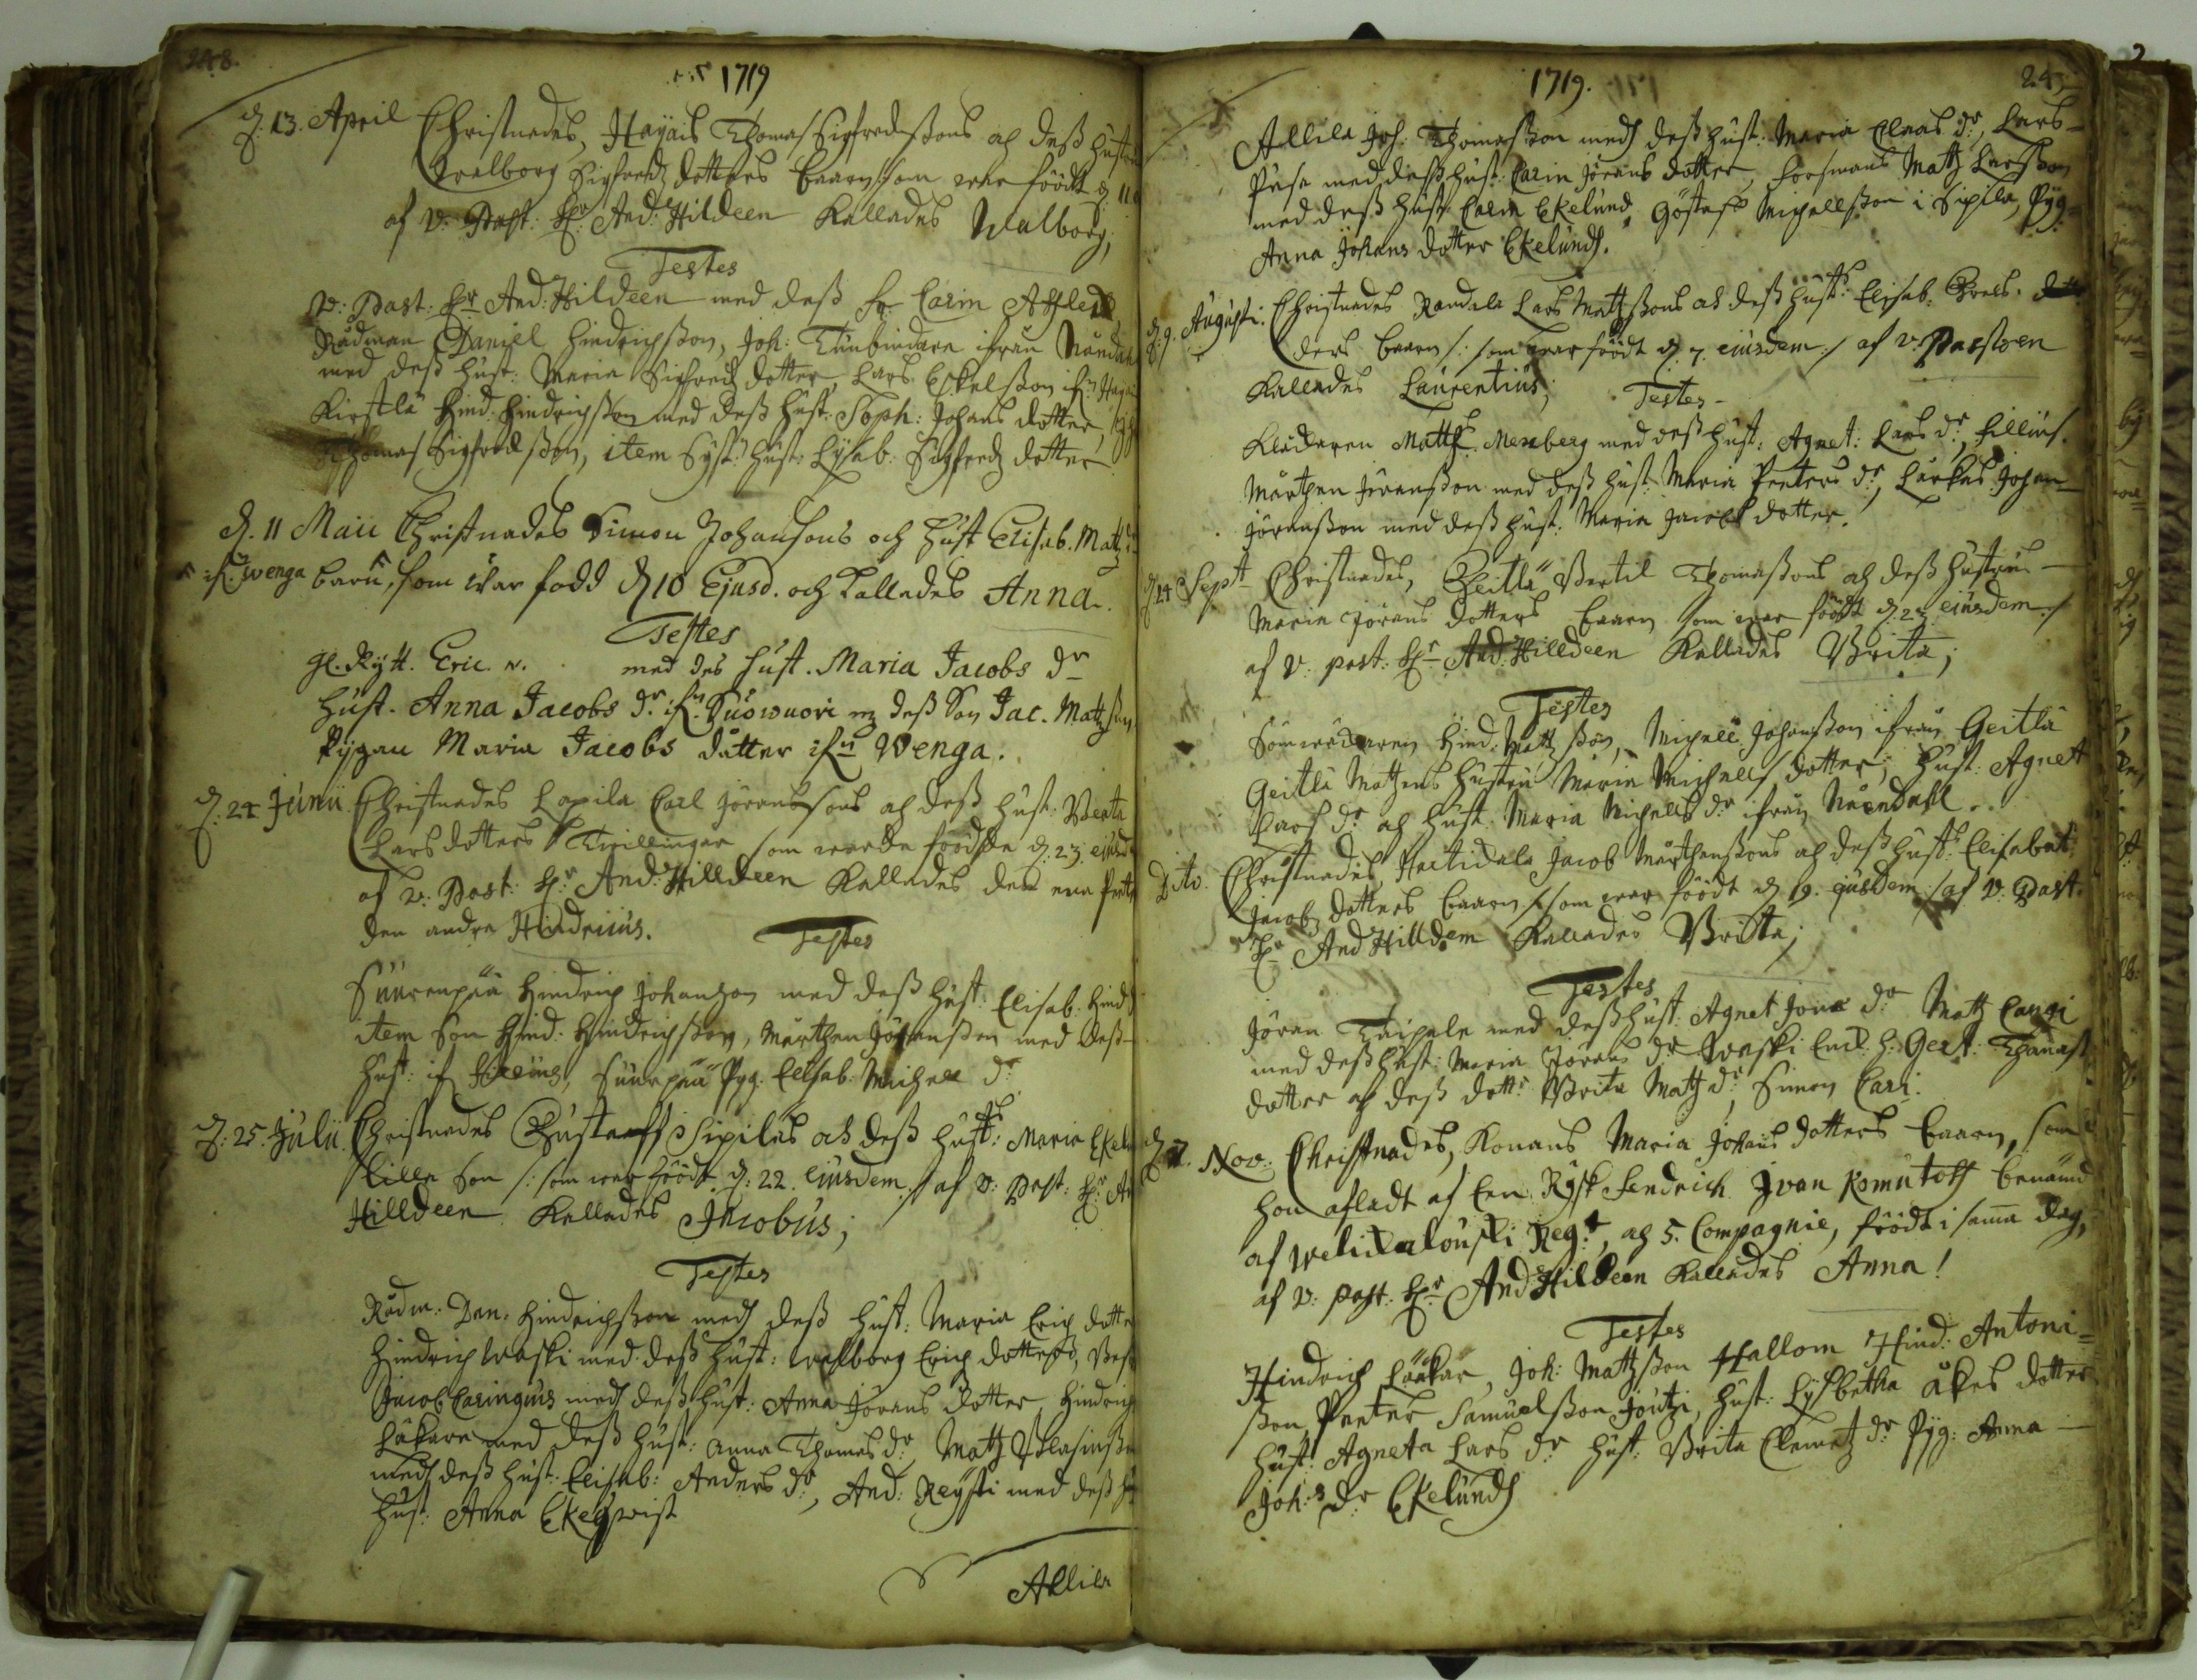 248.
1719
d. 13. April Christnades, Hayais Thomas Sigfredssons och dess hustru
Walborg Sigfredz dotters baarn som war föödt d. 11
af V: Past: Hr And: Hildeen kallades Walborg;
Testes
V: Past: Hr And: Hildeen med dess fr. Carin Athle
Rådman Daniel Hindrichsson, Joh: Tunbindare ifrån Nåndahl
med dess hust: Maria Sigfredz dotter, Lars Eskelsson ifn
Kirstlä Hind. Hindrichsson med dess hust. Soph: Johans dotter,
Thomas Sigfredsson, item Syst. hust: Lysab. Sigfredz dotter
d. 11 Maii Christnades Simon Johansons och hust Elisab. Matz
ifn Wenga barn, som war född d 10 Ejusd. och kallades Anna.
Testes
gl. Rytt. Eric. N. med des hust. Maria Jacobs dr
hust. Anna Jacobs dr ifn Suowuori mz dess Son Jac. Matzson
Pygan Maria Jacobs dåtter ifn Wenga.
d. 24 Junii Christnades Lapila Carl Jöranssons och dess hust: Beata
Larsdotters Twillingar som warde föödde d. 23. ejusd
af V: Past: Hr And: Hilldeen kallades den ena
den andra Hindricus.
Testes
Suurenpää Hindrich Johansson med dess hust. Elisab. Hind
item Son Hind. Hindrichsson, Mårthen Johansson med dess
hust: if Suurpää Pyg. Elisab. Michell dr
d. 25. Julii. Christnades Gustaff Sipiläs och dess hust: Maria Ekel
lilla Son /: som war föödt d: 22. Ejusdem :/ af V: Past: Hr An
Hilldeen kallades Jacobus;
Testes
Rådm: Dan: Hindrichsson med dess hust: Maria Erichs dotter
Hindrich Waski med dess hust: Walborg Erichs dotter,
Jacob Caringius med dess hust: Anna Jörans dotter, Hindrich
Läkare med dess hust: Anna Thomas dr, Matz
med dess hust: Elisab: Anders dr, And: Reyski med dess
hust. Anna Ekeqwist
Allila
1719.
Allila Joh. Thomasson med dess hust: Maria Claas dr, Lars
med dess hust: Carin Jörans dotter, Forsmans Matz Larsson
med dess hust: Carin Ekelund, Göstaf Michellsson i Sipila, Pyg
Anna Johans dotter Ekelundh.
d. 9. Augusti. Christnades Randala Lars Matzssons och dess hust: Elisab. Thoms. dot
ters baarn /: som war föödt d. 7. ejusdem :/ af V: Pastoren
kallades Laurentius; Testes
Klädaren Matth. Menberg med dess hust: Agnet: Lars dr, Fillius.
Mårthen Jöransson med dess hust: Maria Peters dr, Lärkas Johan
Jöransson med dess hust: Maria Jacobs dotter.
d 24 Sept Christnades, Geitlä Bertil Thomassons och dess hustru
Maria Jörans dotters baarn som war föödt d. 23. ejusdem
af V. past: Hr And: Hilldeen kallades Brita;
Testes
Hind. Matzsson, Michell Johansson ifrån Geitlä
Geitlä Matzens hustru Maria Michells dotter; hust. Agnet
Lars dr och hust: Maria Michells dr ifrån Nåendahl.
Dito. Christnades Hartidala Jacob Mårthenssons och dess hust: Elisabet
Jacobz dotters baarn /: som war föödt d 19. ejusdem :/ af V: Past:
Hr And Hilldeen kallades Brita;
Testes
Jöran Taipale med dess hust: Agnet Jöns dr Matz Cangi
med dess hust: Maria Jörans dr Waski Enck. h. Gert. Thomas
dotter och dess dottr Brita Matz dr, Simon Cari.
d 7. Nov. Christnades, Konans Maria Johans dotters baarn, som
hon afladt af Een Rysk Fendrich Ivan Komutoff benämd
af Welickalouski Regt, och 5. Compagnie, föödt i samma dag,
af V: past: Hr And Hildeen kallades Anna!
Testes
Hindrich Läkar, Joh: Matzson Hallom Hind: Antoni
son Peeter Samuelsson Joutzi, hust: Lysbetha Åkes dotter
hust: Agneta Lars dr hust: Brita Clemetz dr Pyg: Anna
Joh:s dr Ekelundh